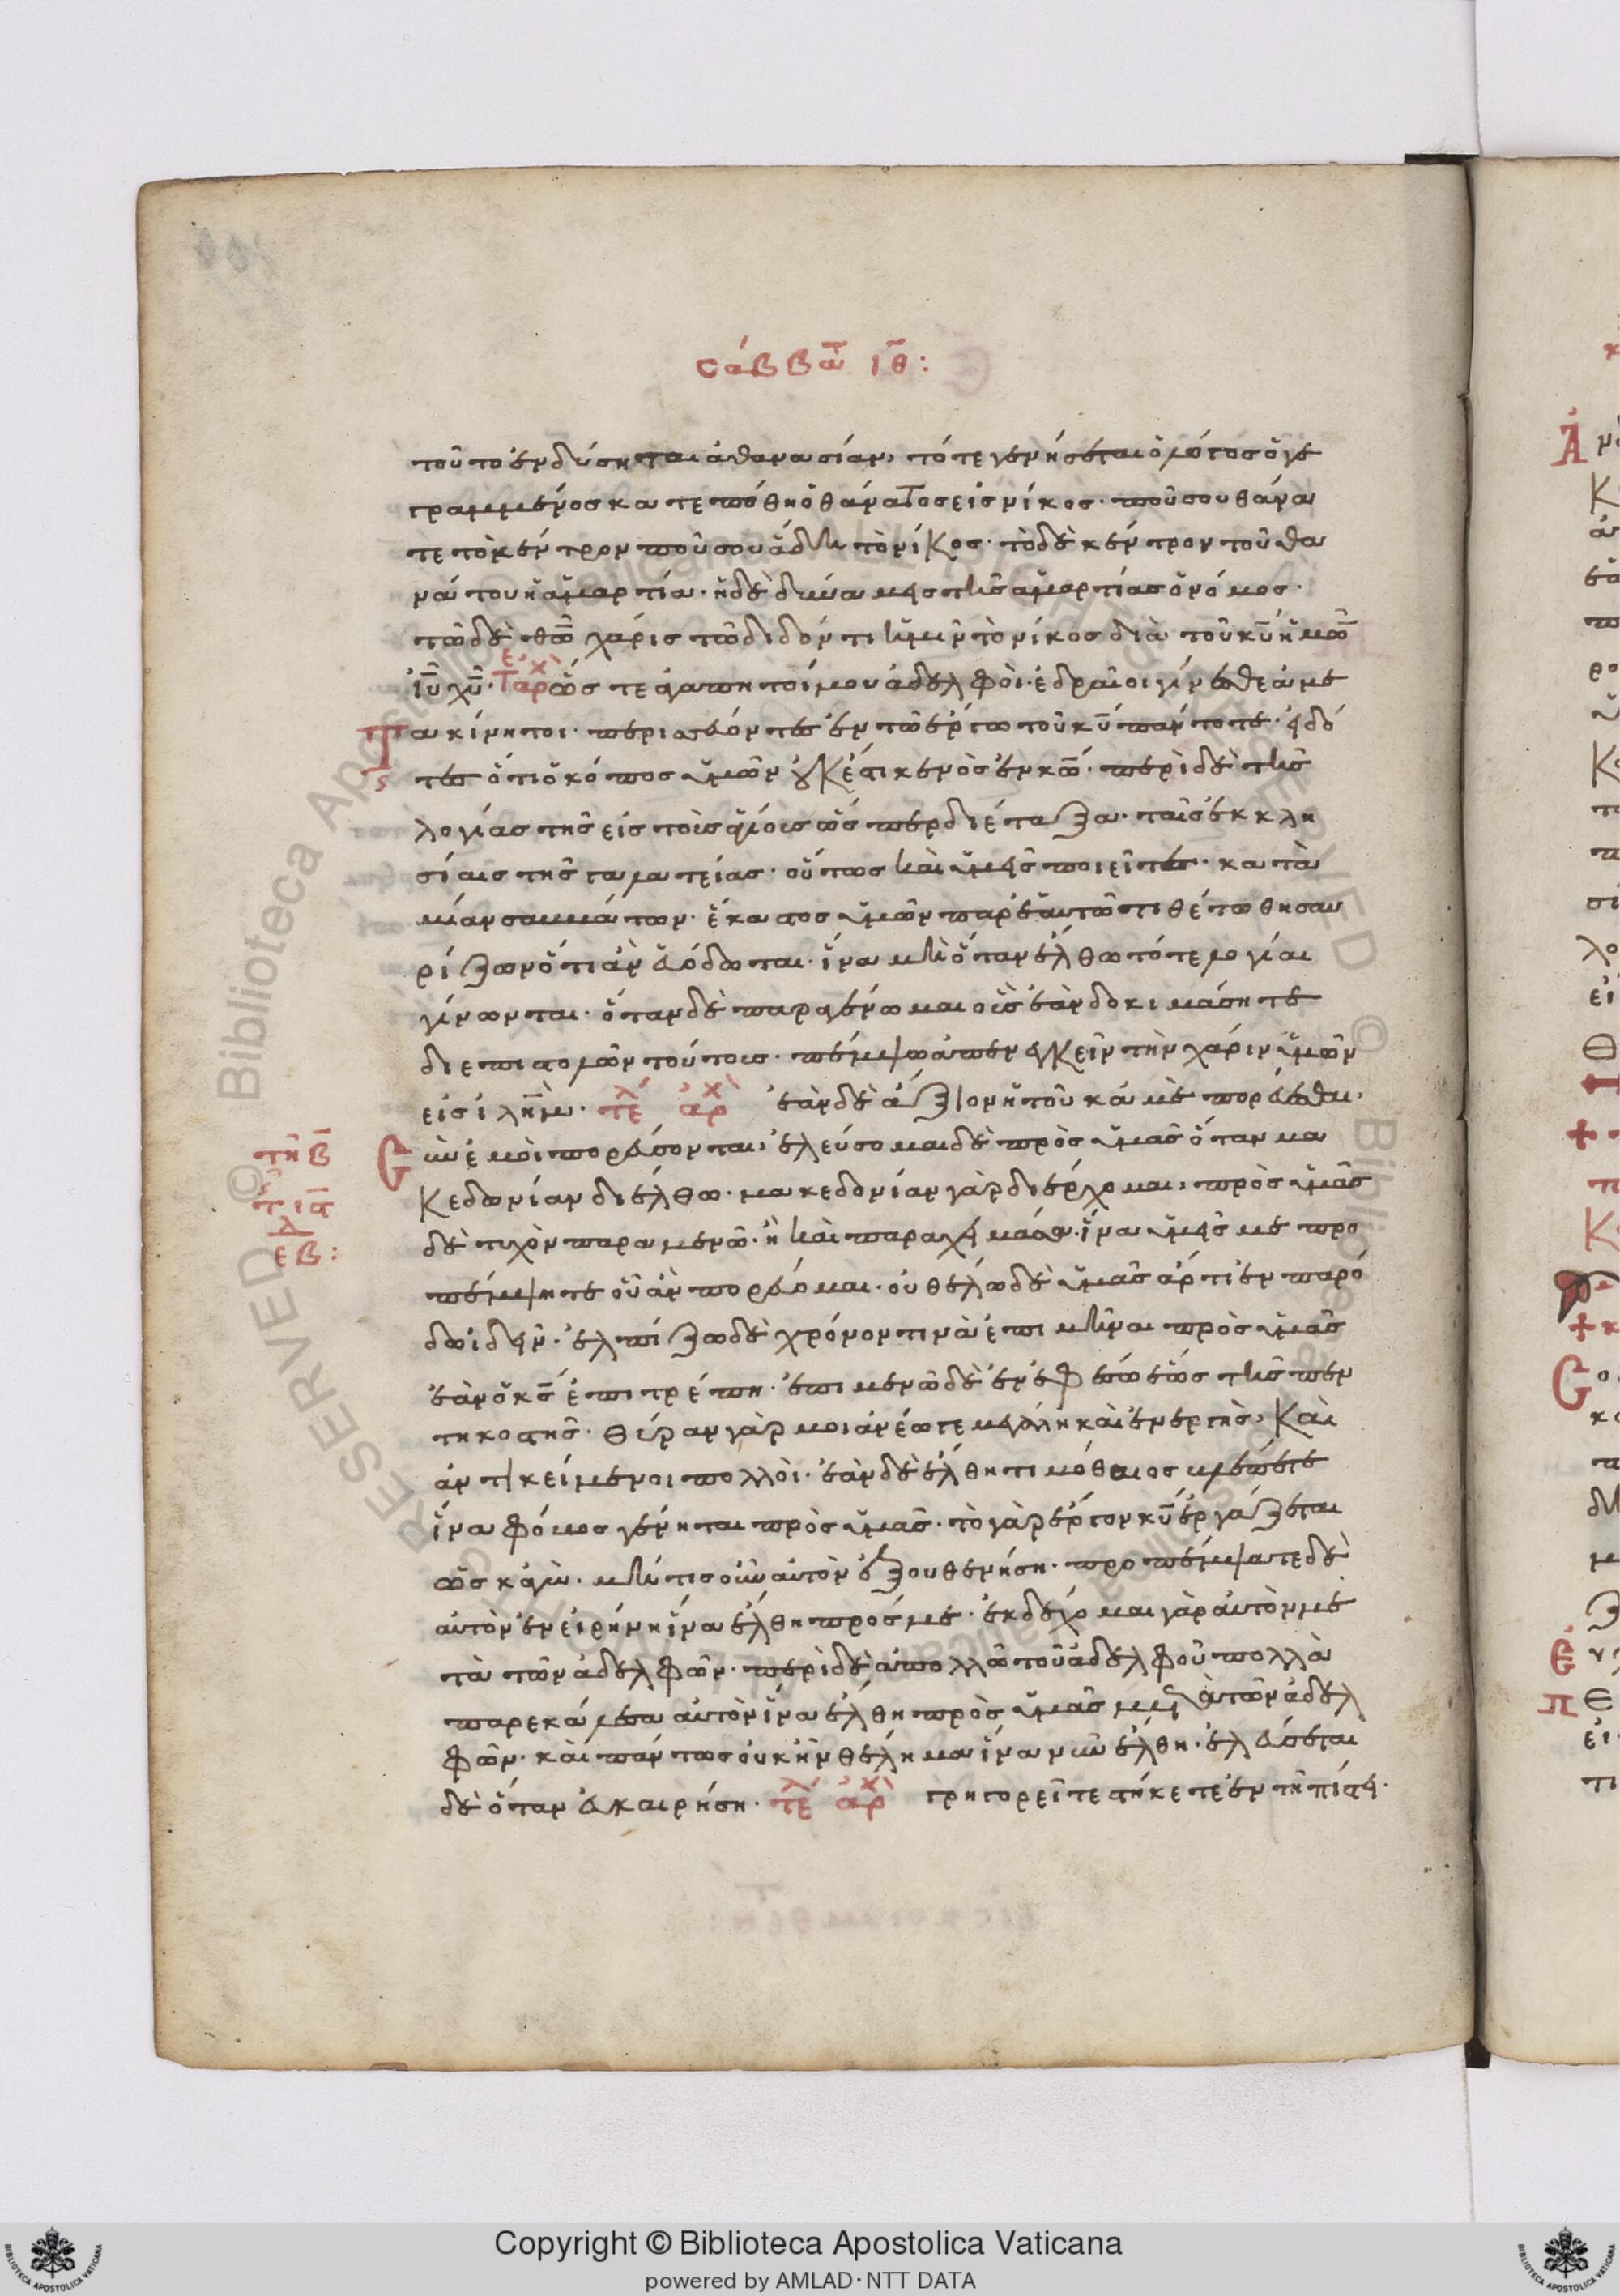 σάββατ ιθ:
τοῦτο ἐνδύσηται ἀθανασίαν, τότε γενήσεται ὁ λόγος ὁ γε
γραμμένος κατεπόθη ὁ θάνατος εἰς νίκος· ποῦ σου θάνα
τε τὸ κέντρον ποῦ σου ἅδη τὸ νίκος· τὸ δὲ κέντρον τοῦ θα
νάτου ἡ ἁμαρτία· ἡ δὲ δύναμις τῆς ἁμαρτίας ὁ νόμος·
τῶ δὲ θω χάρις τῶ διδόντι ἡμῖν τὸ νίκος διὰ τοῦ κυ ἡμῶ
ιυ χυ· ὥς τε ἀγαπητοί μου ἀδελφοὶ· ἑδραῖοι γίνεσθε ἀμε
τακίνητοι· περισσεύοντες ἐν τῶ ἔργω τοῦ κυ πάντοτε· εἰδό
τες ὅτι ὁ κόπος ὑμῶν οὐκ ἔστι κενὸς ἐν κω· περὶ δὲ τῆς
λογίας τῆς εἰς τοὺς ἁγίους ὥσπερ διέταξα· ταῖς ἐκκλη
σίαις τῆς γαλατείας· οὕτως καὶ ὑμεῖς ποιεῖτε· κατὰ
μίαν σαββάτων· ἕκαστος ὑμῶν παρ ἑαυτῶ τιθέτω θησαυ
ρίζων ὅτι ἂν εὐόδωται· ἵνα μὴ ὅταν ἔλθω τότε λογίαι
γίνωνται· ὅταν δὲ παραγένωμαι οὓς ἐὰν δοκιμάσητε
δι ἐπιστολῶν τούτους· πέμψω ἀπενεγκεῖν τὴν χάριν ὑμῶν
εἰς ιλημ· τέλ ἀρχ ἐὰν δὲ ἄξιον ἦ τοῦ κάμὲ πορεύεσθαι,
σὺν ἐμοὶ πορεύσονται, ἐλεύσομαι δὲ πρὸς ὑμᾶς ὅταν μα
κεδωνίαν διέλθω· μακεδονίαν γὰρ διέρχομαι, πρὸς ὑμᾶς
τῆ β
τ ια
εβ:
δὲ τυχὸν παραμενῶ· ἢ καὶ παραχειμάσω· ἵνα ὑμεῖς με προ
πέμψητε οὗ ἂν πορεύομαι· οὐ θέλω δὲ ὑμᾶς ἄρτι ἐν παρό
δω ἰδεῖν· ἐλπίζω δὲ χρόνον τινὰ ἐπιμεῖναι πρὸς ὑμᾶς
ἐὰν ὁ κς ἐπιτρέπη· ἐπιμενῶ δὲ ἐν ἐφέσω ἕως τῆς πεν
τηκοστῆς· θύραν γάρ μοι ἀνέωγε μεγάλη καὶ ἐνεργὴς, καὶ
ἀντικείμενοι πολλοὶ· ἐὰν δὲ ἔλθη τιμόθεος βλέπετε
ἵνα φόβος γένηται πρὸς ὑμᾶς· τὸ γὰρ ἔργον κυ ἐργάζεται
ὡς κἀγὼ· μή τις οὖν αὐτὸν ἐξουθενήση· προπέμψατε δὲ
αὐτὸν ἐν εἰρήνη ἵνα ἔλθη πρός με· ἐκδέχομαι γὰρ αὐτὸν με
τὰ τῶν ἀδελφῶν· περὶ δὲ ἀπολλῶ τοῦ ἀδελφοῦ πολλὰ
παρεκάλεσα αὐτὸν ἵνα ἔλθη πρὸς ὑμᾶς μετὰ τῶν ἀδελ
φῶν· καὶ πάντως οὐκ ἦν θέλημα ἵνα νῦν ἔλθη· ἐλεύσεται
δὲ ὅταν εὐκαιρήση· τέλ ἀρχ γρηγορεῖτε στήκετε ἐν τῆ πίστει·
Copyright © Biblioteca Apostolica Vaticana
powered by AMLAD·NTT DATA